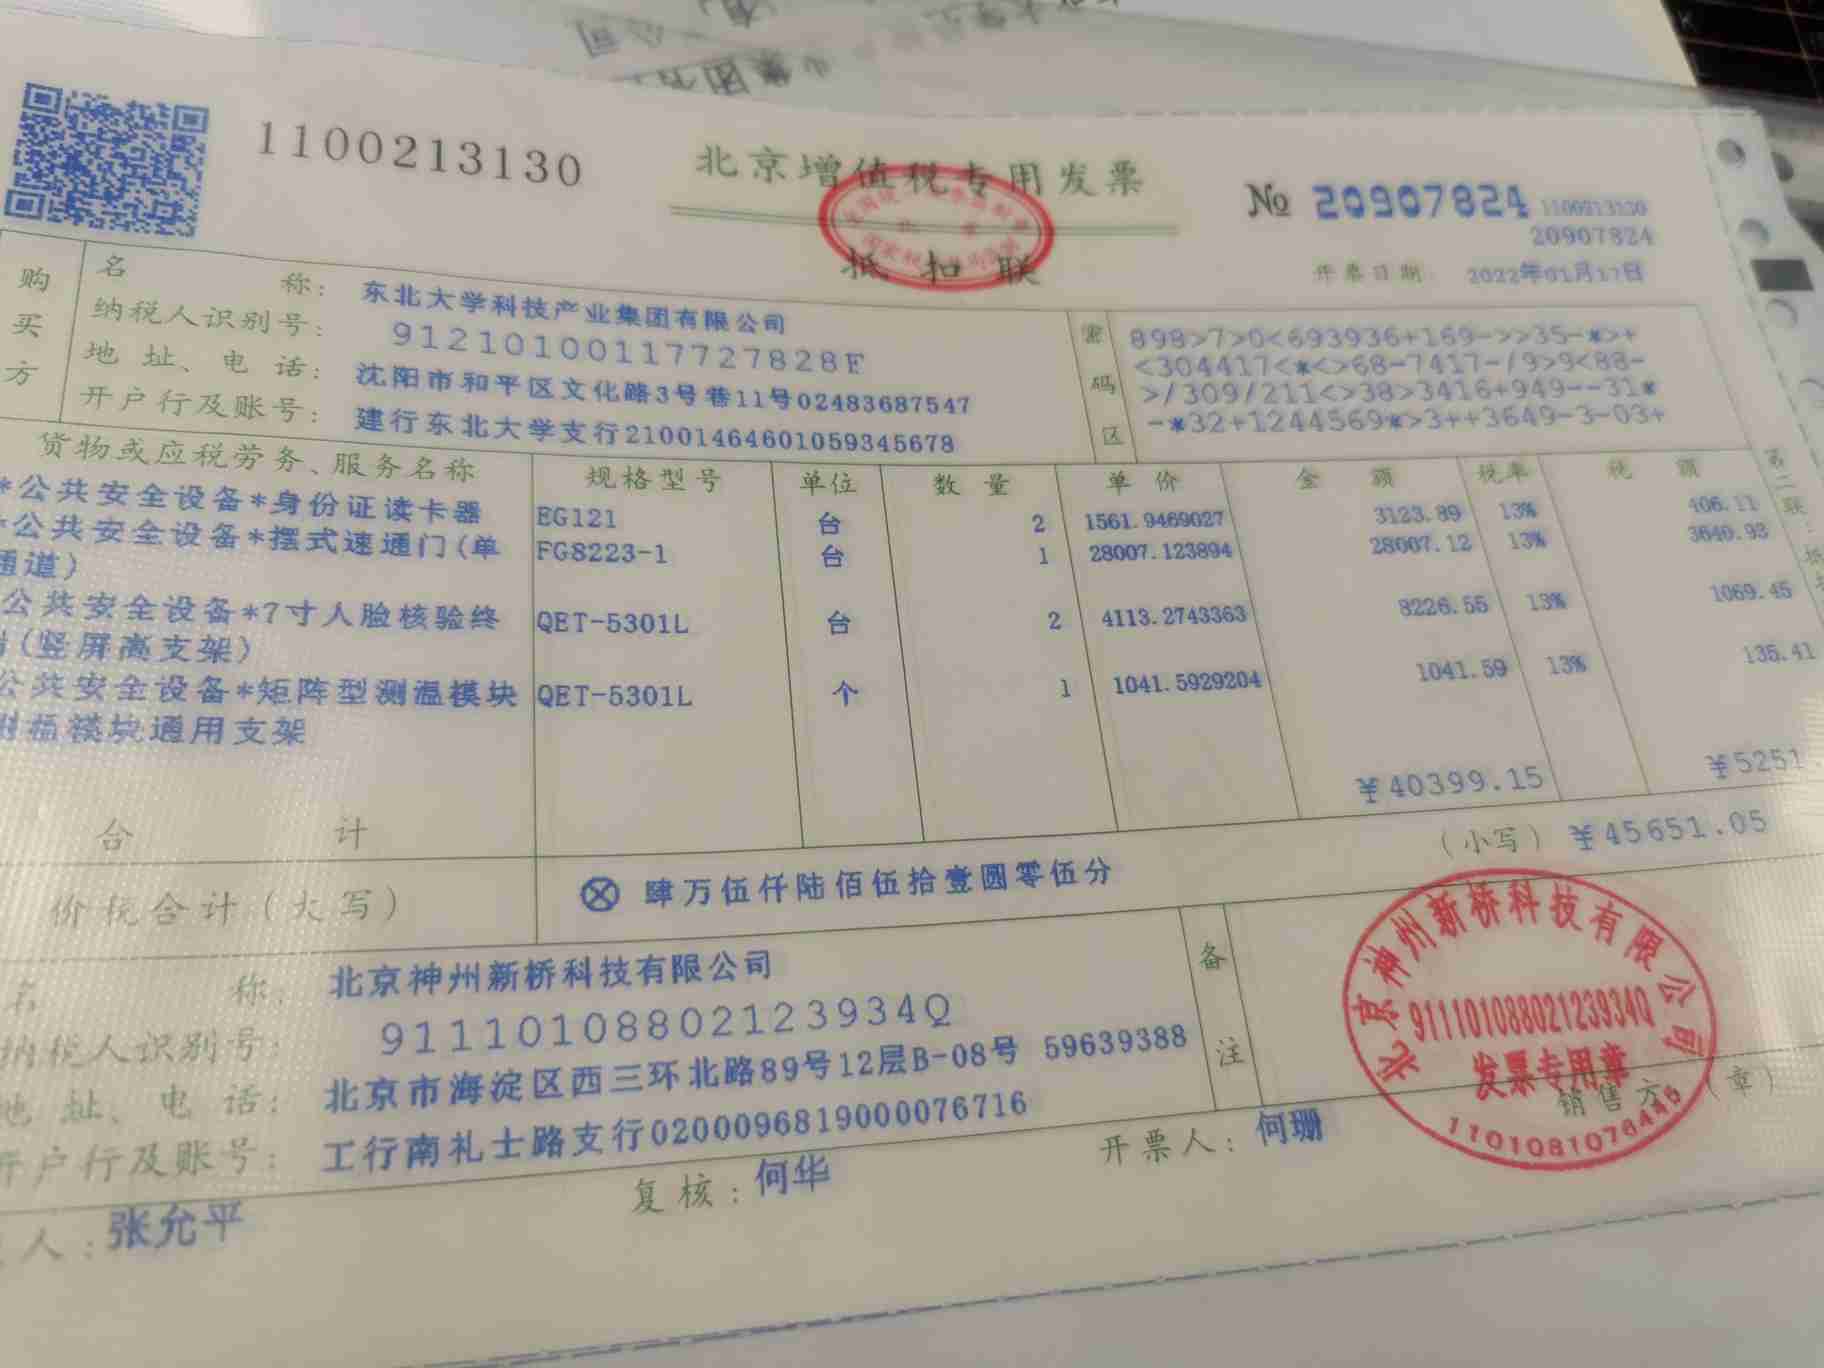 1100213130
北京增值税专用发票
抵扣联
№ 20907824
1100213130
20907824
开票日期: 2022年01月17日
购买方
名 称: 东北大学科技产业集团有限公司
纳税人识别号: 91210100117727828F
地 址、电 话: 沈阳市和平区文化路3号巷11号02483687547
开户行及账号: 建行东北大学支行21001464601059345678
密码区
898>7>0<693936+169->>35-*>+
<304417<*<>68-7417-/9>9<88-
>/309/211<>38>3416+949--31*
-*32+1244569*>3++3649-3-03+
货物或应税劳务、服务名称 规格型号 单位 数 量 单 价 金 额 税率 税 额
*公共安全设备*身份证读卡器 EG121 台 2 1561.9469027 3123.89 13% 406.11
*公共安全设备*摆式速通门(单 FG8223-1 台 1 28007.123894 28007.12 13% 3640.93
通道)
公共安全设备*7寸人脸核验终 QET-5301L 台 2 4113.2743363 8226.55 13% 1069.45
(竖屏高支架)
公共安全设备*矩阵型测温模块 QET-5301L 个 1 1041.5929204 1041.59 13% 135.41
模块通用支架
合 计 ¥40399.15 ¥5251
价税合计(大写) ⊗ 肆万伍仟陆佰伍拾壹圆零伍分 (小写) ¥45651.05
名 称: 北京神州新桥科技有限公司
纳税人识别号: 91110108802123934Q
地 址、电 话: 北京市海淀区西三环北路89号12层B-08号 59639388
开户行及账号: 工行南礼士路支行0200096819000076716
备注
北京神州新桥科技有限公司
91110108802123934Q
发票专用章
1101081076445
人: 张允平 复核: 何华 开票人: 何珊 销售方:(章)
第二联: